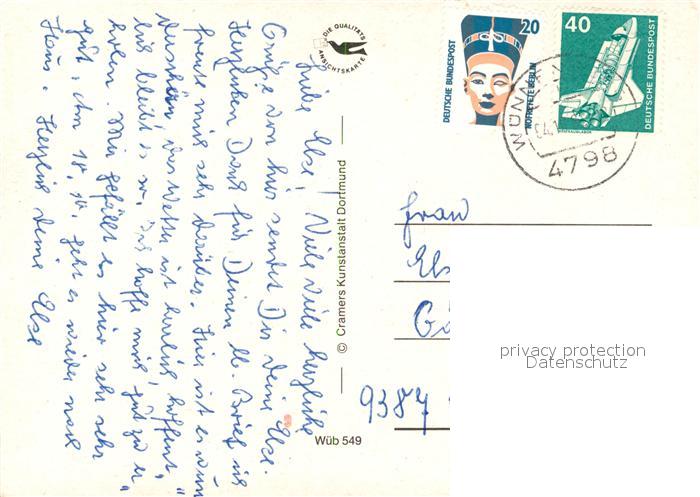 Liebe Else! Viele Viele herzliche
Grüße von hier sendet Dir deine Else.
Herzlichen Dank für Deinen lb. Brief ich
freute mich sehr darüber. Hier ist es wun„
derschön, das Wetter ist herrlich, hoffent„
lich bleibt es so. Ich hoffe mich gut zu er„
holen. Mir gefällt es hier sehr sehr
gut, am 18. 10. geht es wieder nach
Haus. Herzlich Deine Else
DIE QUALITÄTS
ANSICHTSKARTE
© Cramers Kunstanstalt Dortmund
Wüb 549
DEUTSCHE BUNDESPOST
20
NOFRETETE BERLIN
40
DEUTSCHE BUNDESPOST
WÜN
4798
Frau
Els
9387
privacy protection
Datenschutz